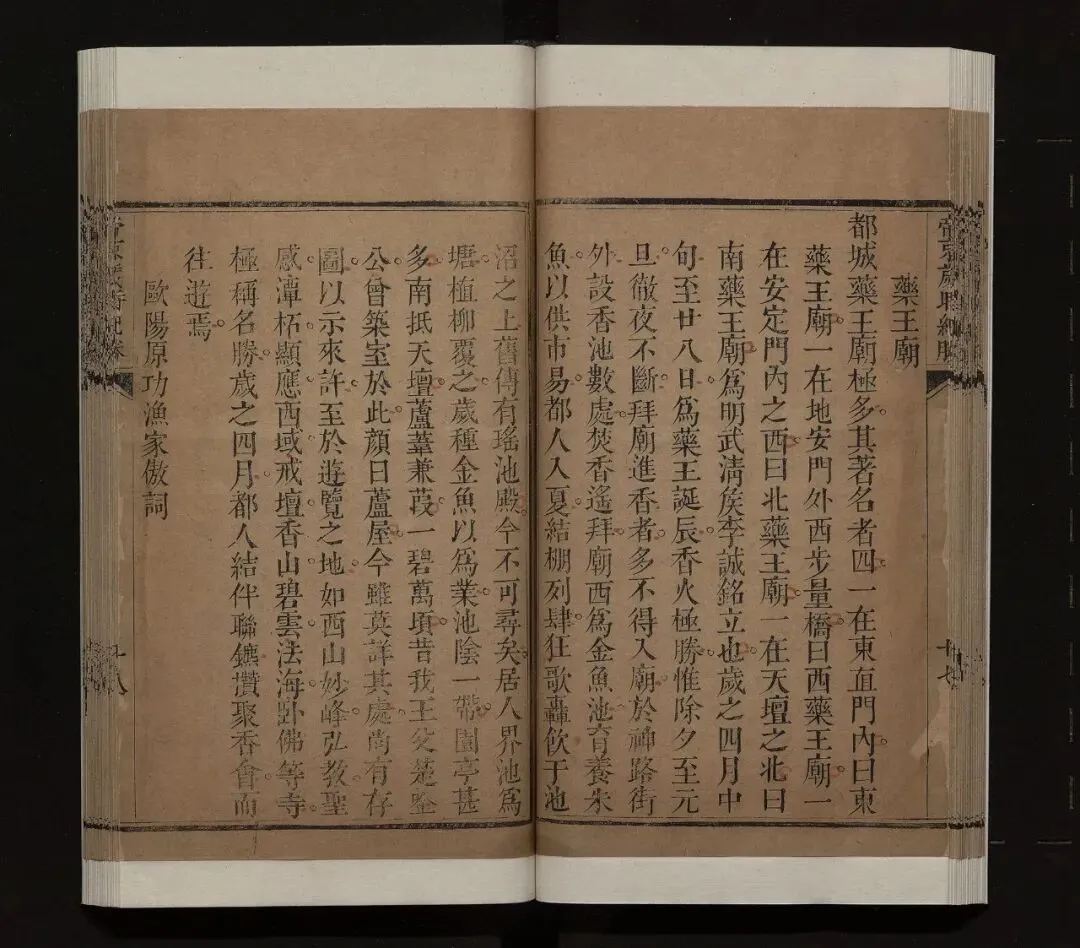 藥王廟
都城藥王廟極多其著名者四一在東直門內曰東
藥王廟一在地安門外西步量橋曰西藥王廟一
在安定門內之西曰北藥王廟一在天壇之北曰
南藥王廟爲明武淸侯李誠銘立也歲之四月中
旬至廿八日爲藥王誕辰香火極勝惟除夕至元
旦徹夜不斷拜廟進香者多不得入廟於神路街
外設香池數處焚香遙拜廟西爲金魚池育養朱
魚以供市易都人入夏結棚列肆狂歌轟飲于池
沼之上舊傳有瑤池殿今不可尋矣居人界池爲
塘植柳覆之歲種金魚以爲業池陰一帶園亭甚
多南抵天壇蘆葦蒹葭一碧萬頃昔我王父楚
公曾築室於此顏曰蘆屋今雖莫詳其處尚有存
圖以示來許至於遊覽之地如西山妙峰弘教聖
感潭柘顯應西域戒壇香山碧雲法海臥佛等寺
極稱名勝歲之四月都人結伴聯鑣攢聚香會而
往遊焉
歐陽原功漁家傲詞